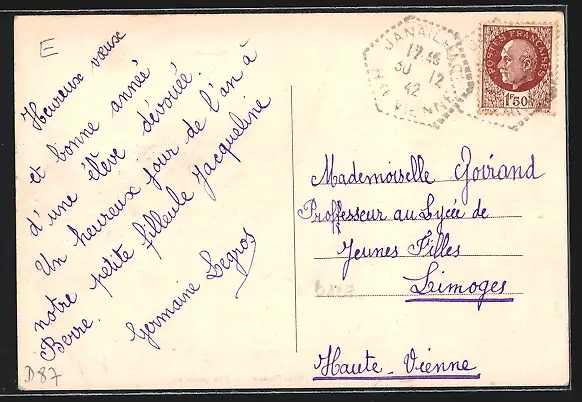 E
Heureux vœux
et bonne année
d'une élève dévouée.
Un heureux jour de l'an à
notre petite filleule Jacqueline
Berre.
Germaine Legros
D87
JANAILHAC
17 45
30 12
42
HTE VIENNE
POSTES FRANÇAISES
1F50
Mademoiselle Goirand
Proffesseur au Lycée de
Jeunes Filles
Limoges
Haute-Vienne